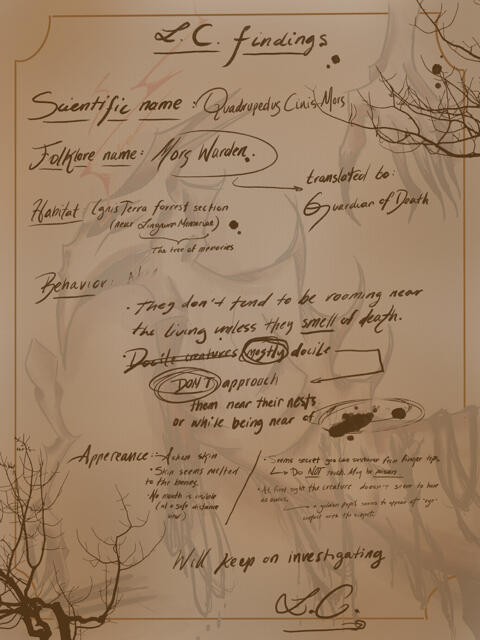 L.C. findings
Scientific name: Quadrupedus Cinis Mors
Folklore name: Mors Warden.
translated to:
Guardian of Death
Habitat Ignis Terra forrest section
(near Memoriae)
The tree of memories
Behavior:
· They don't tend to be rooming near
the living unless they smell of death.
· Docile creatures mostly docile
DON'T approach
them near their nests
or while being near of
Appereance: skin
· Skin seems melted
to the bones.
· No mouth is visible
(at a safe distance
Seems secret goo like finger tips.
Do NOT touch. May be poison
· At first sight the creature doesn't seem to have
a golden pupil seems to appear of "eye"
contact with the
Will keep on investigating
L.C.